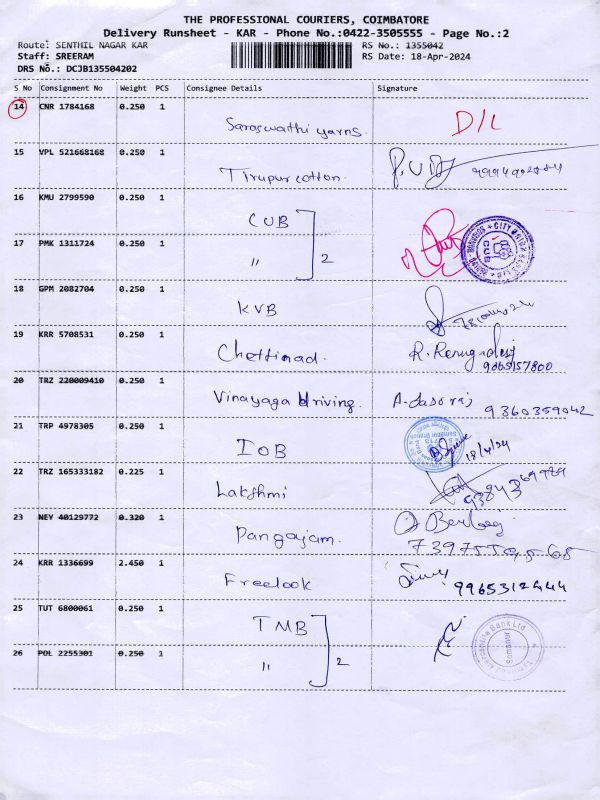 THE PROFESSIONAL COURIERS, COIMBATORE
Delivery Runsheet - KAR - Phone No.:0422-3505555 - Page No.:2
Route: SENTHIL NAGAR KAR
RS No.: 1355042
Staff: SREERAM
RS Date: 18-Apr-2024
DRS No.: DCJB135504202
S No Consignment No Weight PCS Consignee Details Signature
14 CNR 1784168 0.250 1
Saraswathi yarns. D/L
15 VPL 521668168 0.250 1
Tirupur cotton.
16 KMU 2799590 0.250 1
CUB
17 PMK 1311724 0.250 1
" 2
18 GPM 2082704 0.250 1
KVB
19 KRR 5708531 0.250 1
Chettinad. 9865157800
20 TRZ 220009410 0.250 1
Vinayaga driving. 9360359042
21 TRP 4978305 0.250 1
IOB 18/4/24
22 TRZ 165333182 0.225 1
Lakshmi
23 NEY 40129772 0.320 1
Pangajam.
24 KRR 1336699 2.450 1
Freelook 9965312444
25 TUT 6800061 0.250 1
TMB
26 POL 2255301 0.250 1
" 2